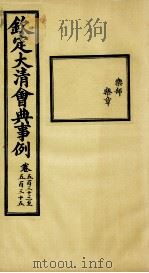 欽定大清會典事例
卷五百三十二至
五百三十五
樂部
樂章
www.mtoou.info